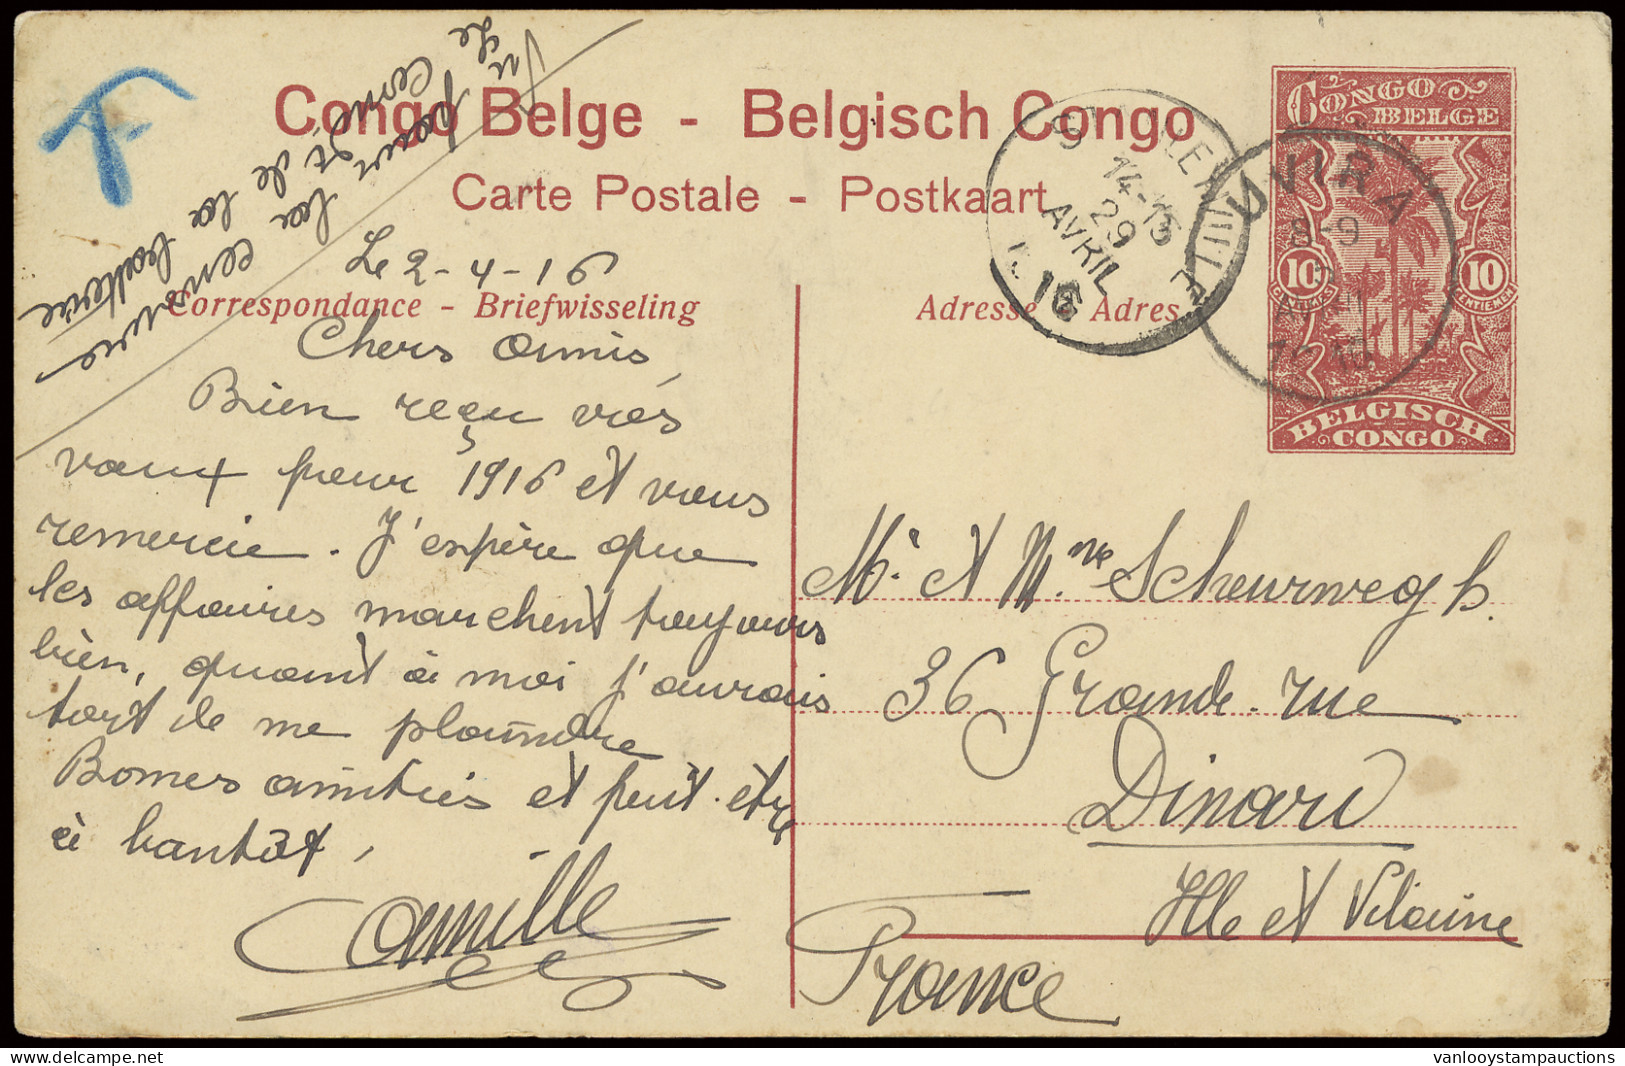 Vu pour la censure
Le Com^t de la batterie
F
Congo Belge - Belgisch Congo
Carte Postale - Postkaart
Correspondance - Briefwisseling
Adresse - Adres
CONGO BELGE
10 10
CENTIMES CENTIEMEN
BELGISCH CONGO
UVIRA
8-9
14-15
29
AVRIL
16
Le 2-4-16
Chers amis,
Bien reçu vos
vœux pour 1916 et vous
remercie. J'espère que
les affaires marchent toujours
bien, quant à moi j'aurais
tort de me plaindre
Bonnes amitiés et peut-être
à bientôt,
Camille
Mr. et Mme Scheurwegh.
36 Grande rue
Dinard
Ille et Vilaine
France
vanlooystampauctions